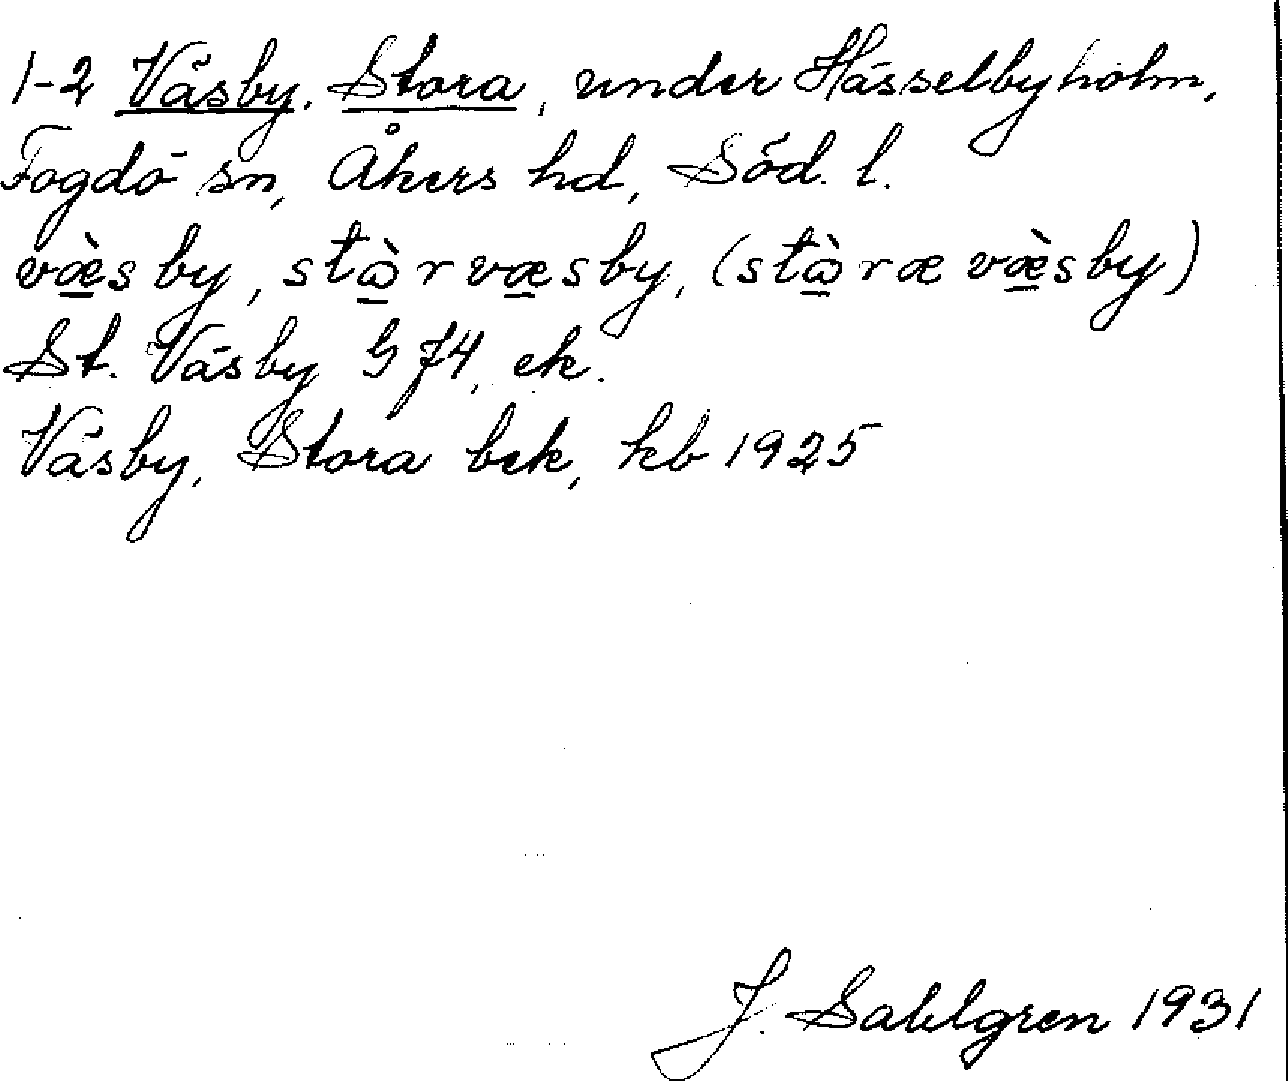 1-2 Väsby, Stora, under Hässelbyholm,
Fogdö sn, Åkers hd, Söd. l.
væ̀sby, stɷ̀rvæsby, (stɷ̀ræ væ̀sby)
St. Väsby G 74, ek.
Väsby, Stora bek, kb 1925
J. Sahlgren 1931